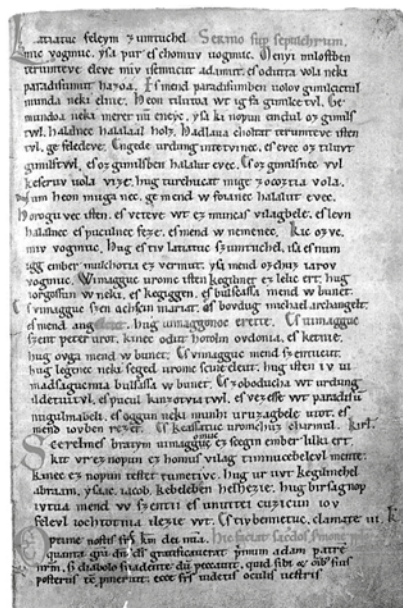 Latiatuc feleym zumtuchel Sermo sup sepulchrum.
mic vogmuc. ysa pur es chomuv uogmuc. Menyi milostben
terumteve eleve miv isemucut adamut. es odutta vola neki
paradisumut hazoa. Es mend paradisumben uolov gimilcictul
munda neki elnie. Heon tilutoa wt ig fa gimilce twl. Ge
mundoa neki meret nu eneyc. ysa ki nopun emdul oz gimils
twl. halalnec halalaal holz. Hadlaua choltat terumteve isten
twl. ge feledeve. Engede urdung intetvinec. es evec oz tiluvt
gimilstwl. es oz gimilsben halalut evec. Es oz gimilsnec wl
keseruv uola vize. hug turchucat mige zocoztia vola.
Num heon muga nec. ge mend w foianec halalut evec.
Horogu vec isten. es veteve wt ez muncas vilagbele. es levn
halalnec es puculnec feze. es mend w nemenec. Kic ozvc.
miv vogmuc. Hug es tiv latiatuc szumtuchel. isa es num
igg ember mulchotia ez vermut. ysa mend ozchuz iarov
vogmuc. Wimagguc uromc isten kegilmet ez lelic ert. hug
iorgossun w neki. es kegiggen. es bulsassa mend w bunet.
Es vimagguc szen achscin mariat. es bovdug michael archangelt.
es mend angelcut. hug uimaggonoc erette. Es uimagguc
szent peter urot. kinec odut hotolm ovdonia. es ketnie.
hug ovga mend w bunet. Es vimagguc mend szentucut.
hug legenec neki seged uromc scine eleut. hug isten iv ui
madsagucmia bulsassa w bunet. Es zoboducha wt urdung
ildetuitwl. es pucul kinzotviatwl. es vezesse wt paradisu
nugulmabeli. es oggun neki munhi uruzagbele utot. es
mend iovben rezet. Es keassatuc uromchuz charmul. kirl.
Scerelmes bratym uimagguc omuc ez scegin ember lilki ert.
kit vr ez nopun ez homus vilag timnucebelevl mente.
kinec ez nopun testet tumetivc. hug ur uvt kegilmehel
abraam. ysaac. iacob. kebeleben helhezie. hug birsagnop
ivtva mend w szentii es unuttei cuzicun iov
felevl iochtotnia ilezie wt. Es tivbennetuc. clamate iii. k